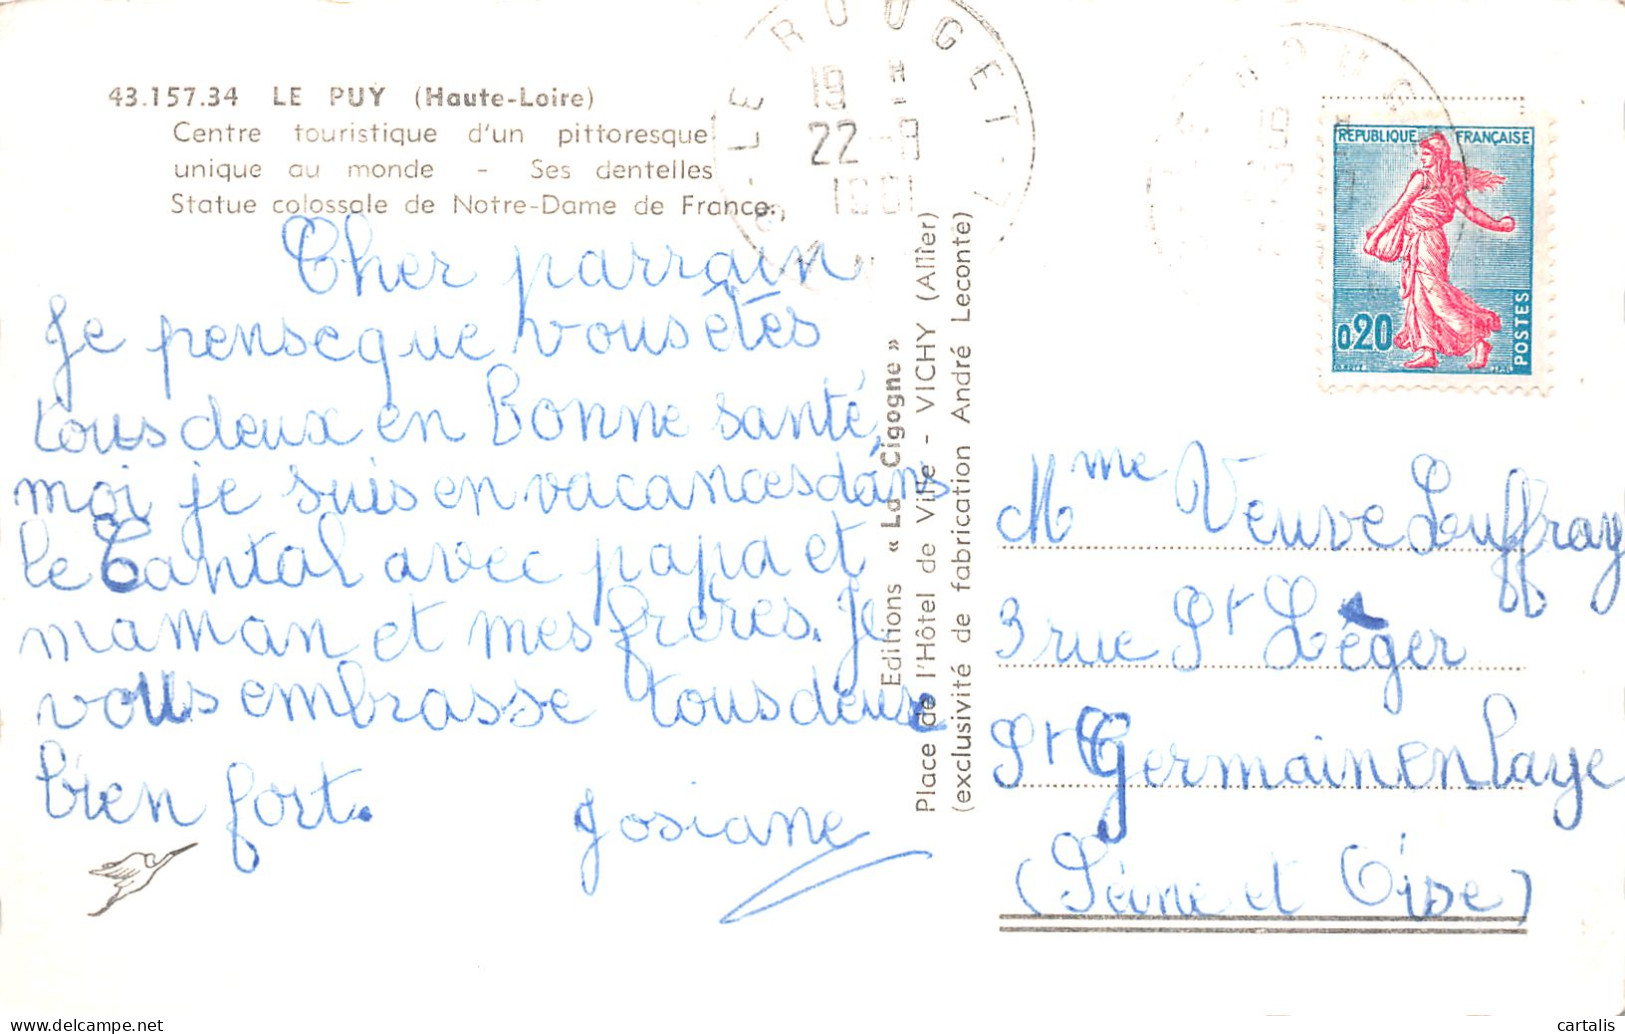 43.157.34 LE PUY (Haute-Loire)
Centre touristique d'un pittoresque
unique au monde - Ses dentelles
Statue colossale de Notre-Dame de France.
Cher parrain
Je pense que vous êtes
tous deux en Bonne santé,
moi je suis en vacances dans
le Cantal avec papa et
maman et mes frères. Je
vous embrasse tous deux
bien fort.
Josiane
LE ROUGET
19 H
22 -9
1961
Editions « La Cigogne »
Place de l'Hôtel de Ville - VICHY (Allier)
(exclusivité de fabrication André Leconte)
REPUBLIQUE FRANÇAISE
0,20
POSTES
Mme Veuve Louffray
3 rue St Léger
St Germain en Laye
(Seine et Oise)
cartalis